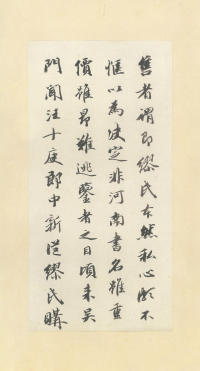 售者謂即繆氏本然私心頗不
愜以為決定非河南書名雖重
價雖昂難逃鑒者之目頃來吳
門聞汪十度郎中新從繆氏購